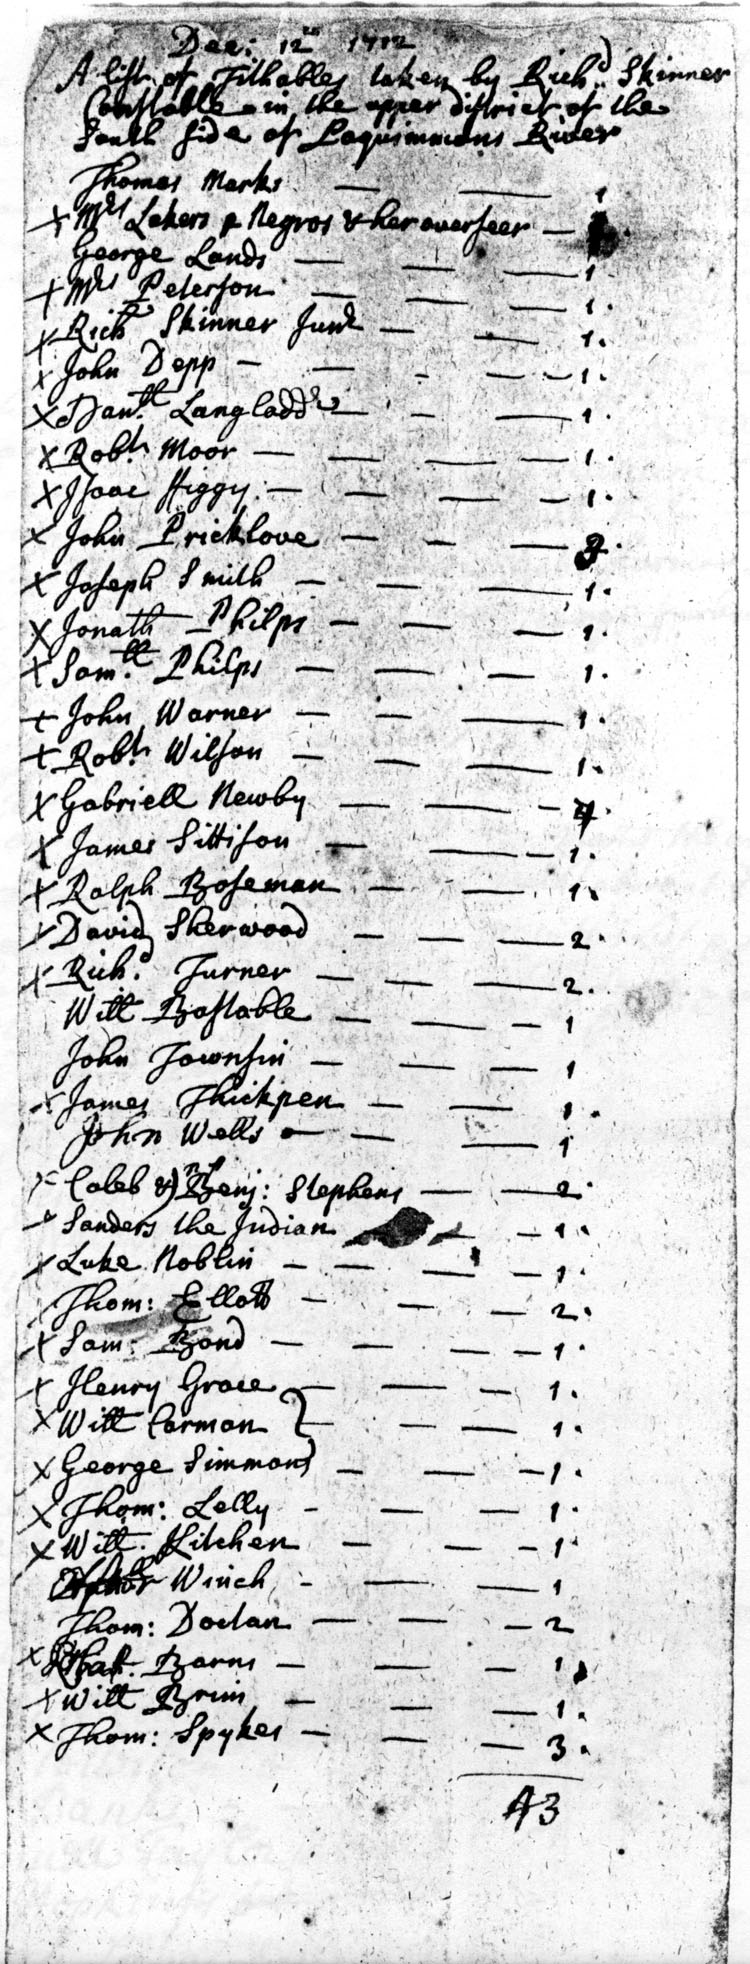 Dec: 12th 1712
A list of Tithables taken by Richd Skinner
Constable in the upper district of the
South side of Paquimmons River
Thomas Marks — — 1
+ Mrs Lakers Negros & her overseer —
George Lands — — — 1
+ Mrs Peterson — — — 1.
+ Richd Skinner Junr — — 1.
x John Depp — — - - — 1.
X Danll — - — 1.
X Robt Moor — — — — 1.
X Isaac Higgy: — — — — 1.
X John Pricklove — - — 3.
X Joseph Smith — — — 1.
X Jonath Philps — — — 1.
+ Samll Philps — — — 1.
+ John Warner — — — 1.
+ Robt Wilson — — — 1.
X Gabriell Newby — — - 4.
X James Sittison — — — 1.
X Ralph Boseman — — — 1.
x David Sherwood — — — 2.
x Richd Turner — — — 2.
Will Bastable — — - 1
John Townsin — — — 1
x James Thickpen — — 1.
John Wells — — — 1
x Caleb & Benj: Stephens — — 2.
x Sanders the Indian — — 1.
x Luke Noblin — — — — 1.
Thom: Ellott — — — 2.
x Sam: Bond — — — — 1.
x Henry Grace — — — 1.
X Will Carman } — — — 1.
X George Simmons — — — 1.
X Thom: Lelly - — — 1.
X Will. Kitchen — — - — 1.
Winch - — — 1
Thom: Doctan — — — 2
x Barns — — — 1
x Will Brin — — — 1.
x Thom: Spykes — — — 3.
43